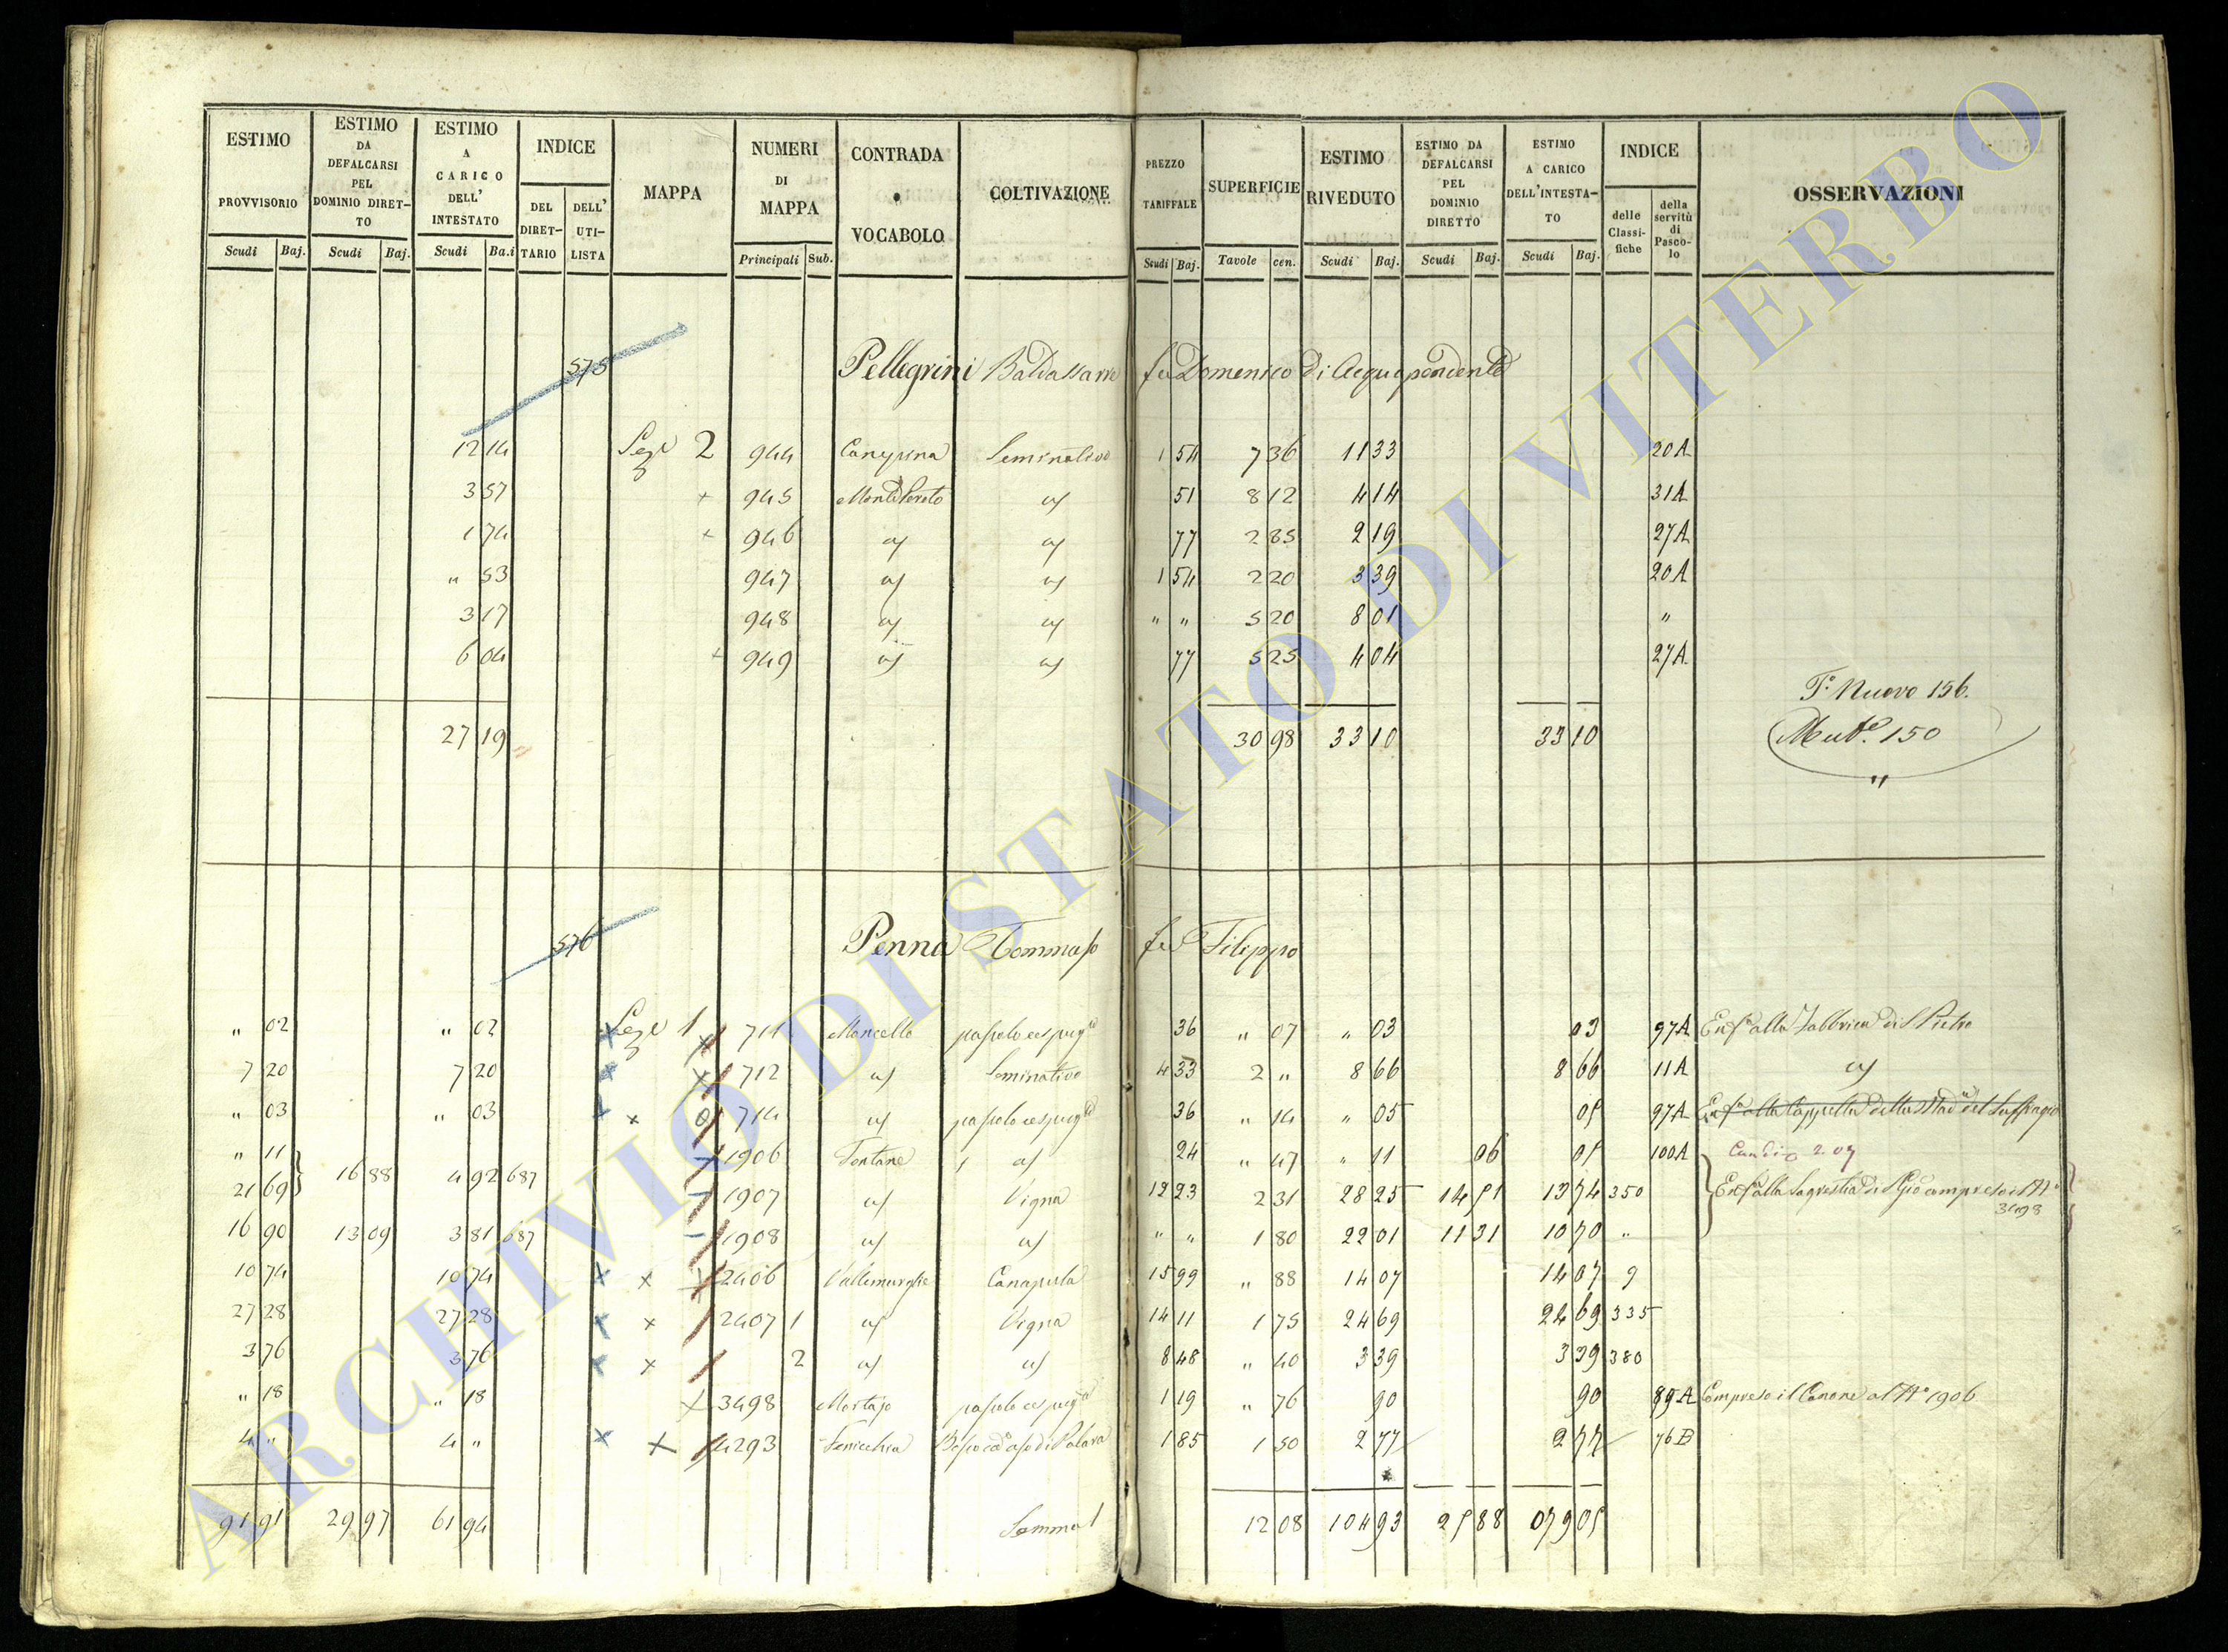 ESTIMO PROVVISORIO Scudi Baj.
ESTIMO DA DEFALCARSI PEL DOMINIO DIRETTO Scudi Baj.
ESTIMO A CARICO DELL' INTESTATO Scudi Ba.i
INDICE DEL DIRETTARIO DELL' UTILISTA
MAPPA
NUMERI DI MAPPA Principali Sub.
CONTRADA o VOCABOLO
COLTIVAZIONE
PREZZO TARIFFALE Scudi Baj.
SUPERFICIE Tavole cen.
ESTIMO RIVEDUTO Scudi Baj.
ESTIMO DA DEFALCARSI PEL DOMINIO DIRETTO Scudi Baj.
ESTIMO A CARICO DELL'INTESTATO Scudi Baj.
INDICE delle Classifiche della servitù di Pascolo
OSSERVAZIONI
575 Pellegrini Baldassarre fu Domenico di Acquapendente
12 14 Sez.e 2 944 Seminativo 1 54 7 36 11 33 20A
3 57 + 945 51 8 12 4 14 31A
1 74 + 946 77 2 85 2 19 27A
" 53 947 1 54 2 20 3 39 20A
3 17 948 " " 5 20 8 01 "
6 04 + 949 77 5 25 4 04 27A
T.o Nuovo 156.
27 19 30 98 33 10 33 10 Mut.e 150
"
576 Penna Tommaso fu Filippo
" 02 " 02 x Sez.e 1 x 711 Moncello 36 " 07 " 03 03 97A Enf.a alla Fabbrica di S Pietro
7 20 7 20 x x 712 Seminativo 4 33 2 " 8 66 8 66 11A
" 03 " 03 x x 714 36 " 14 " 05 05 97A Enf.a alla Cappella della Mad.a del Suffragio
" 11 1906 Fontane 24 " 47 " 11 06 05 100A
21 69 16 88 4 92 687 1907 Vigna 12 23 2 31 28 25 14 51 13 74 350 Enf.a alla Sagrestia di compreso il N.o 3498
16 90 13 09 3 81 687 1908 " " 1 80 22 01 11 31 10 70 "
10 74 10 74 x x 2406 Canapula 15 99 " 88 14 07 14 07 9
27 28 27 28 x x 2407 1 Vigna 14 11 1 75 24 69 24 69 335
3 76 3 76 x x 2 8 48 " 40 3 39 3 39 380
" 18 " 18 x 3498 1 19 " 76 90 90 89A Compreso il Canone al N.o 1906
4 " 4 " x x 4293 1 85 1 50 2 77 2 77 76B
91 91 29 97 61 94 Somma 12 08 104 93 25 88 079 05
ARCHIVIO DI STATO DI VITERBO